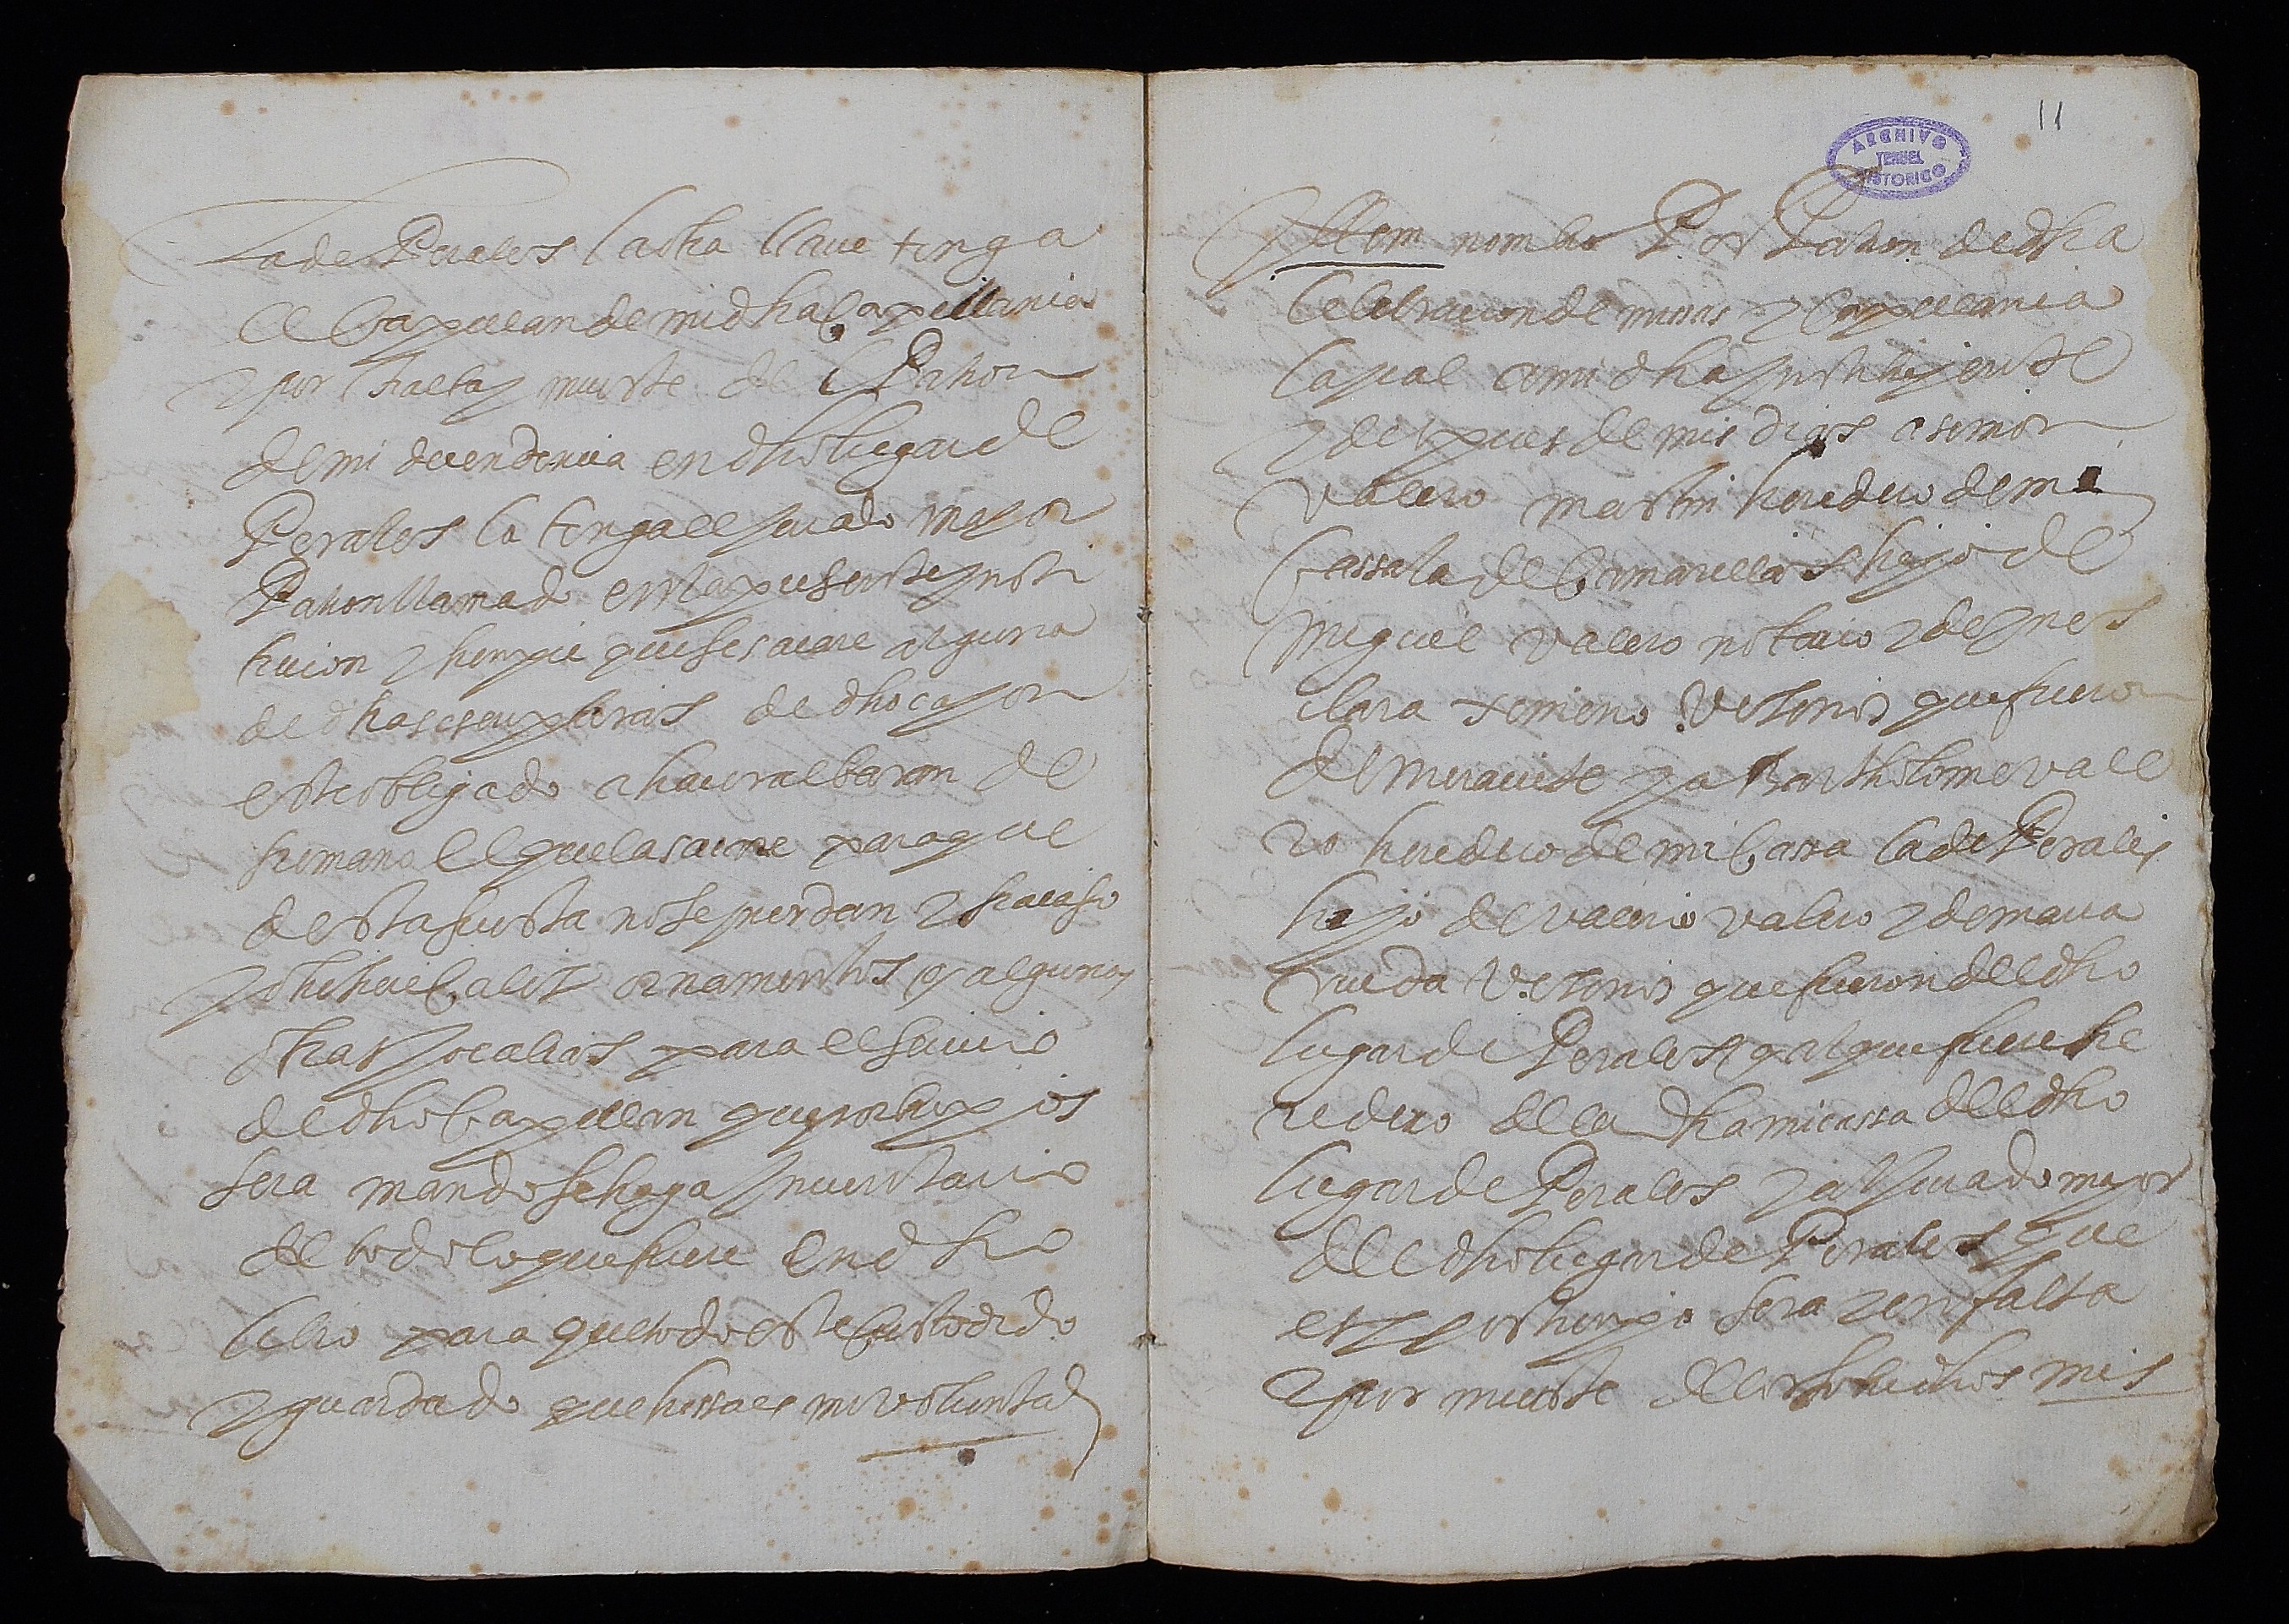 La de Perales la dha llaue tenga
el Capellan de mi dha Capellania
y por falta y muerte del Patron
de mi decendencia en dho lugar de
Perales la tenga el Jurado mayor
Patron llamado en la presente ynsti
tucion y siempre que se sacare alguna
de dhas escripturas de dho cajon
este obligado a hacer albaran de
su mano el que la sacare para que
de esta suerte no se pierdan y si acaso
ydho hue Caliz ornamentos o algunas
otras Jocalias para el seruicio
del dho Capellan que por tiempos
sera mando se haga ynuentario
de todo lo que fuere en dho
Celio para que todo este Custodido
y guardado que hessa es mi voluntad
ARCHIVO
TERUEL
HISTORICO
11
Yttem nombro Por Patron de dha
Celebracion de missas y Capellania
la qual a mi dha ynstituyente
y despues de mis dias a simon
Valero martin heredero de mi
Cassa la de Camarillas hijo de
Miguel Valero notario y de ynes
clara ximeno Vezinos que fueron
de mirauete y a Bartholome vale
ro heredero de mi Cassa la de Perales
hijo de valerio valero y de maria
rueda Vezinos que fueron del dho
lugar de Perales y al que fuere he
redero de la dha mi cassa del dho
lugar de Perales y al Jurado mayor
del dho lugar de Perales que
es y por tiempo sera y en falta
y por muerte de los sobredichos mis